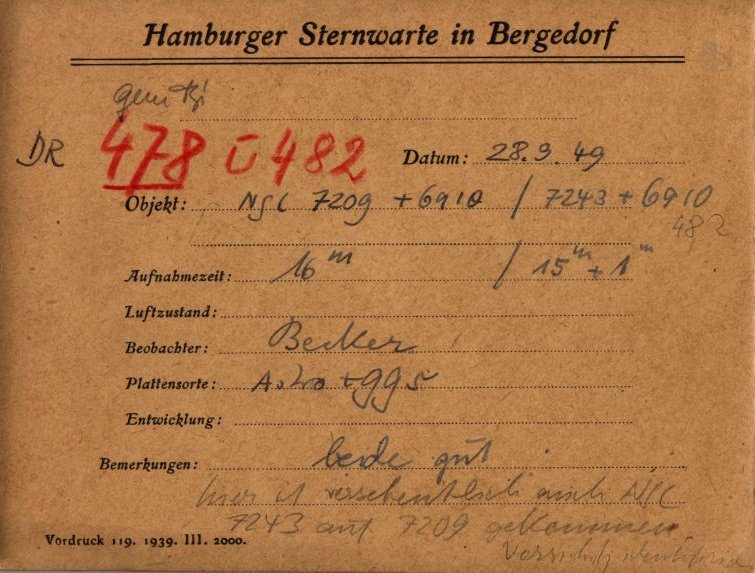 Hamburger Sternwarte in Bergedorf
DR 478 U 482
Datum: 28.9.49
Objekt: NGC 7209 + 6910 / 7243 + 6910
482
Aufnahmezeit: 16ᵐ / 15ᵐ + 1ᵐ
Luftzustand:
Beobachter: Becker
Plattensorte: Astro + GG5
Entwicklung:
Bemerkungen: beide gut
hier ist versehentlich auch NGC
7243 auf 7209 gekommen.
Vordruck 119. 1939. III. 2000.